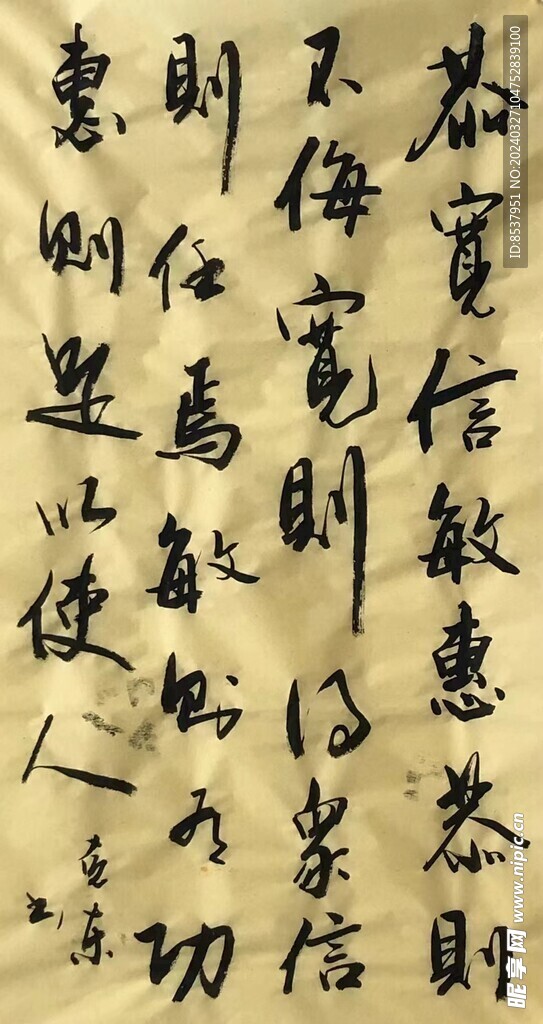 恭寬信敏惠恭則
不侮寬則得眾信
則任焉敏則有功
惠則足以使人
克東
书
ID:8537951 NO:20240327104752839100
昵享网 www.nipic.cn